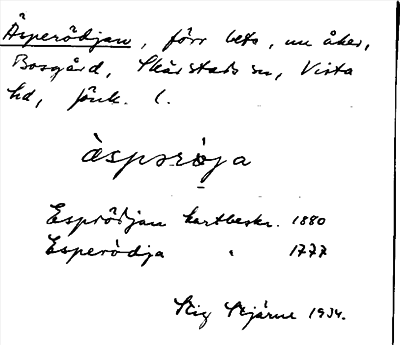 Äsperödjan, förr bete, nu åker,
Bosgård, Skärstads sn, Vista
hd, Jönk. l.
àsperøja
Esprödjan kartbeskr. 1880
Esperödja " 1777
Stig Stjärne 1934.